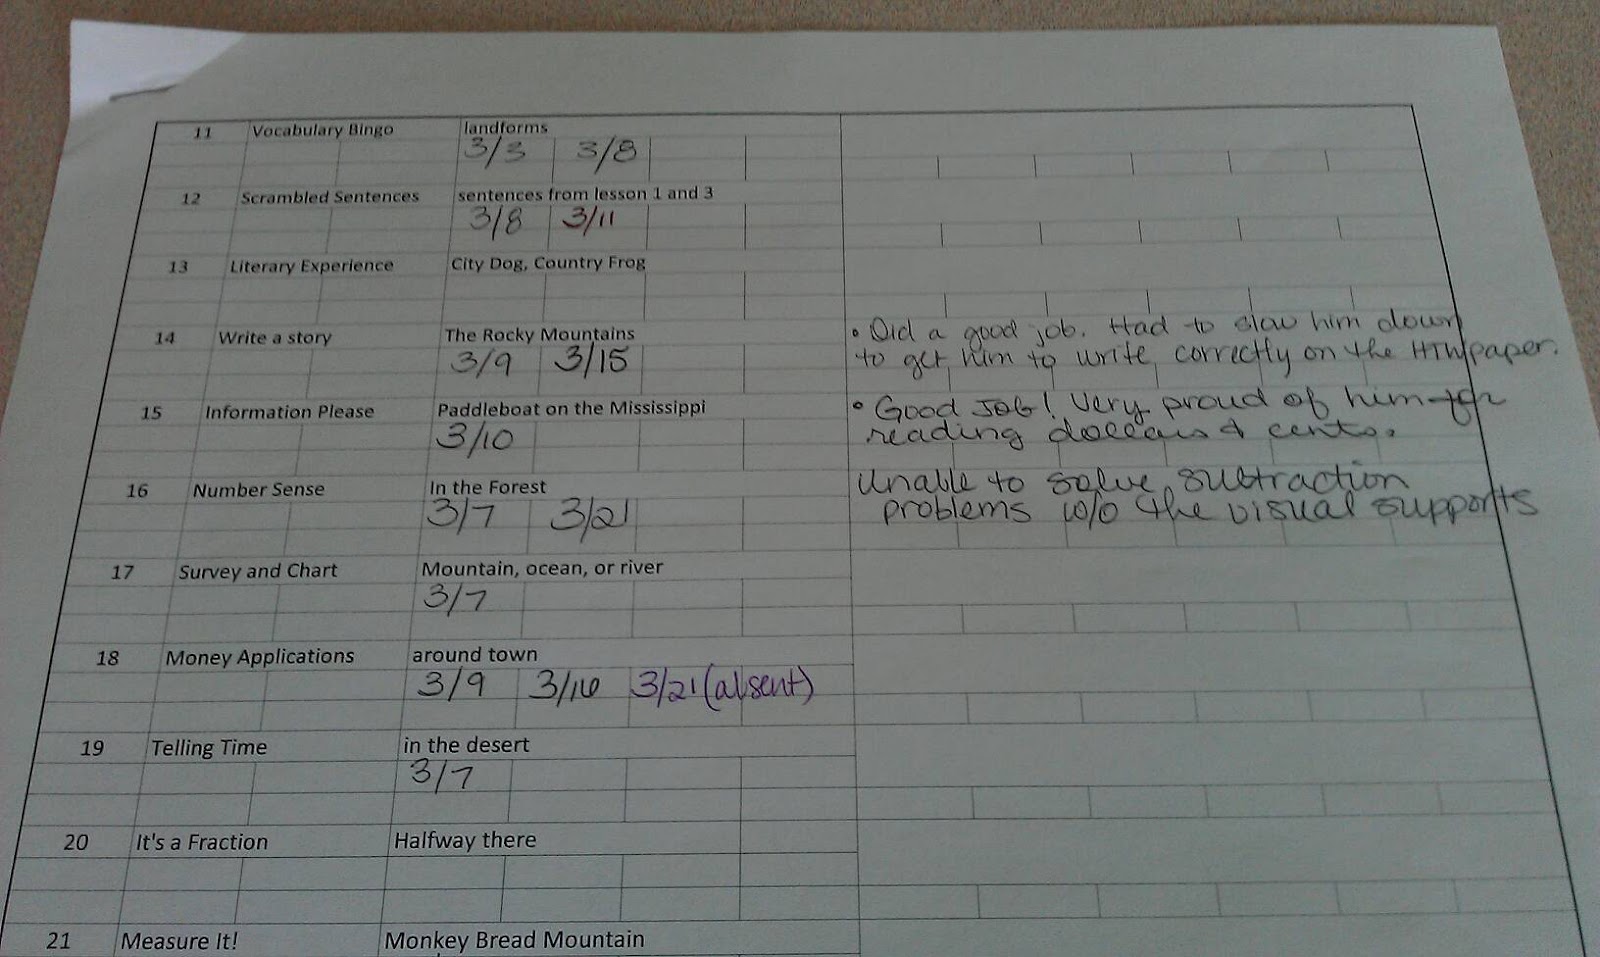 11 Vocabulary Bingo landforms
3/3 3/8
12 Scrambled Sentences sentences from lesson 1 and 3
3/8 3/11
13 Literary Experience City Dog, Country Frog
14 Write a story The Rocky Mountains • Did a good job. Had to slow him down
3/9 3/15 to get him to write correctly on the HTW paper.
15 Information Please Paddleboat on the Mississippi • Good Job! Very proud of him for
3/10 reading dollars & cents.
16 Number Sense In the Forest Unable to solve subtraction
3/7 3/21 problems w/o the visual supports
17 Survey and Chart Mountain, ocean, or river
3/7
18 Money Applications around town
3/9 3/16 3/21 (absent)
19 Telling Time in the desert
3/7
20 It's a Fraction Halfway there
21 Measure It! Monkey Bread Mountain